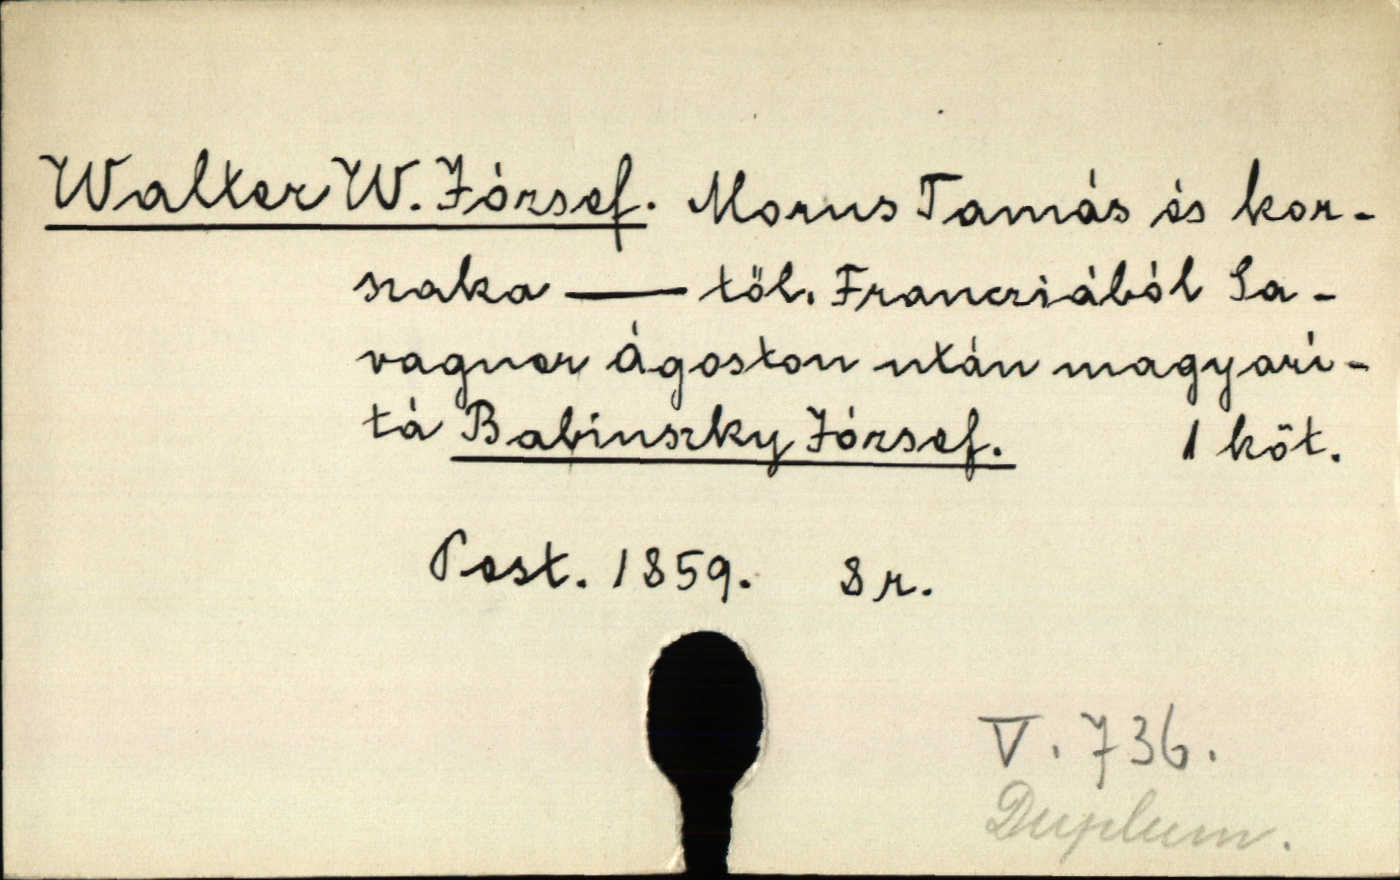 Walter W. József. Morus Tamás és kor-
szaka — től. Francziából Sa-
vagner Ágoston után magyarí-
tá Babinszky József. 1 köt.
Pest. 1859. 8 r.
V. 736.
Duplum.